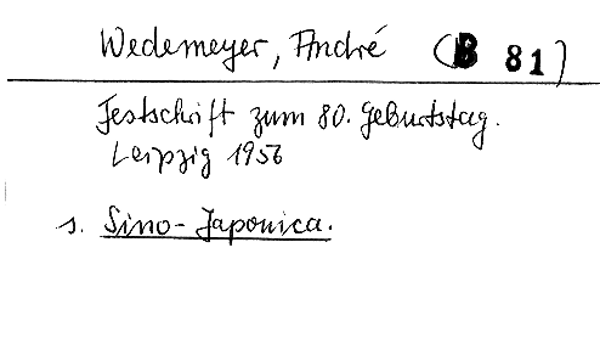 Wedemeyer, André (B 81)
Festschrift zum 80. Geburtstag.
Leipzig 1956
s. Sino-Japonica.